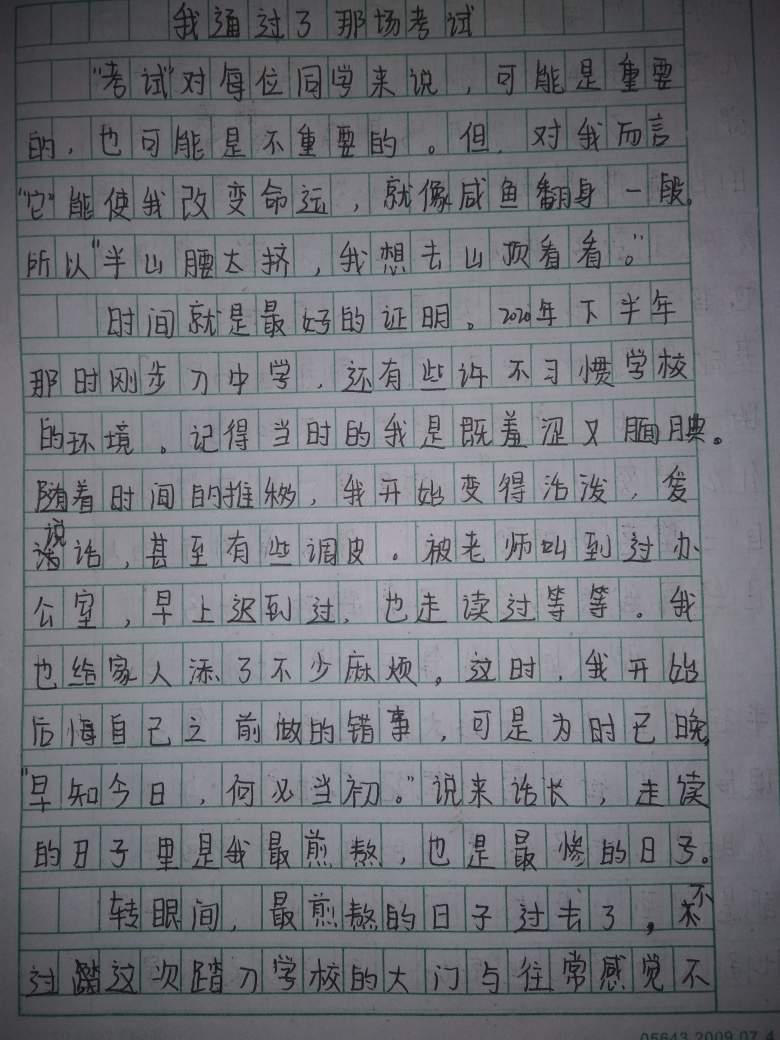 我通过了那场考试
"考试"对每位同学来说，可能是重要
的，也可能是不重要的。但，对我而言
"它"能使我改变命运，就像咸鱼翻身一般。
所以"半山腰太挤，我想去山顶看看。"
时间就是最好的证明。2020年下半年
那时刚步入中学，还有些许不习惯学校
的环境。记得当时的我是既羞涩又腼腆。
随着时间的推移，我开始变得活泼，爱
说话，甚至有些调皮。被老师叫到过办
公室，早上迟到过，也走读过等等。我
也给家人添了不少麻烦。这时，我开始
后悔自己之前做的错事，可是为时已晚，
"早知今日，何必当初。"说来话长，走读
的日子里是我最煎熬，也是最惨的日子。
转眼间，最煎熬的日子过去了，不
过这次踏入学校的大门与往常感觉不
05643 2009.07.4